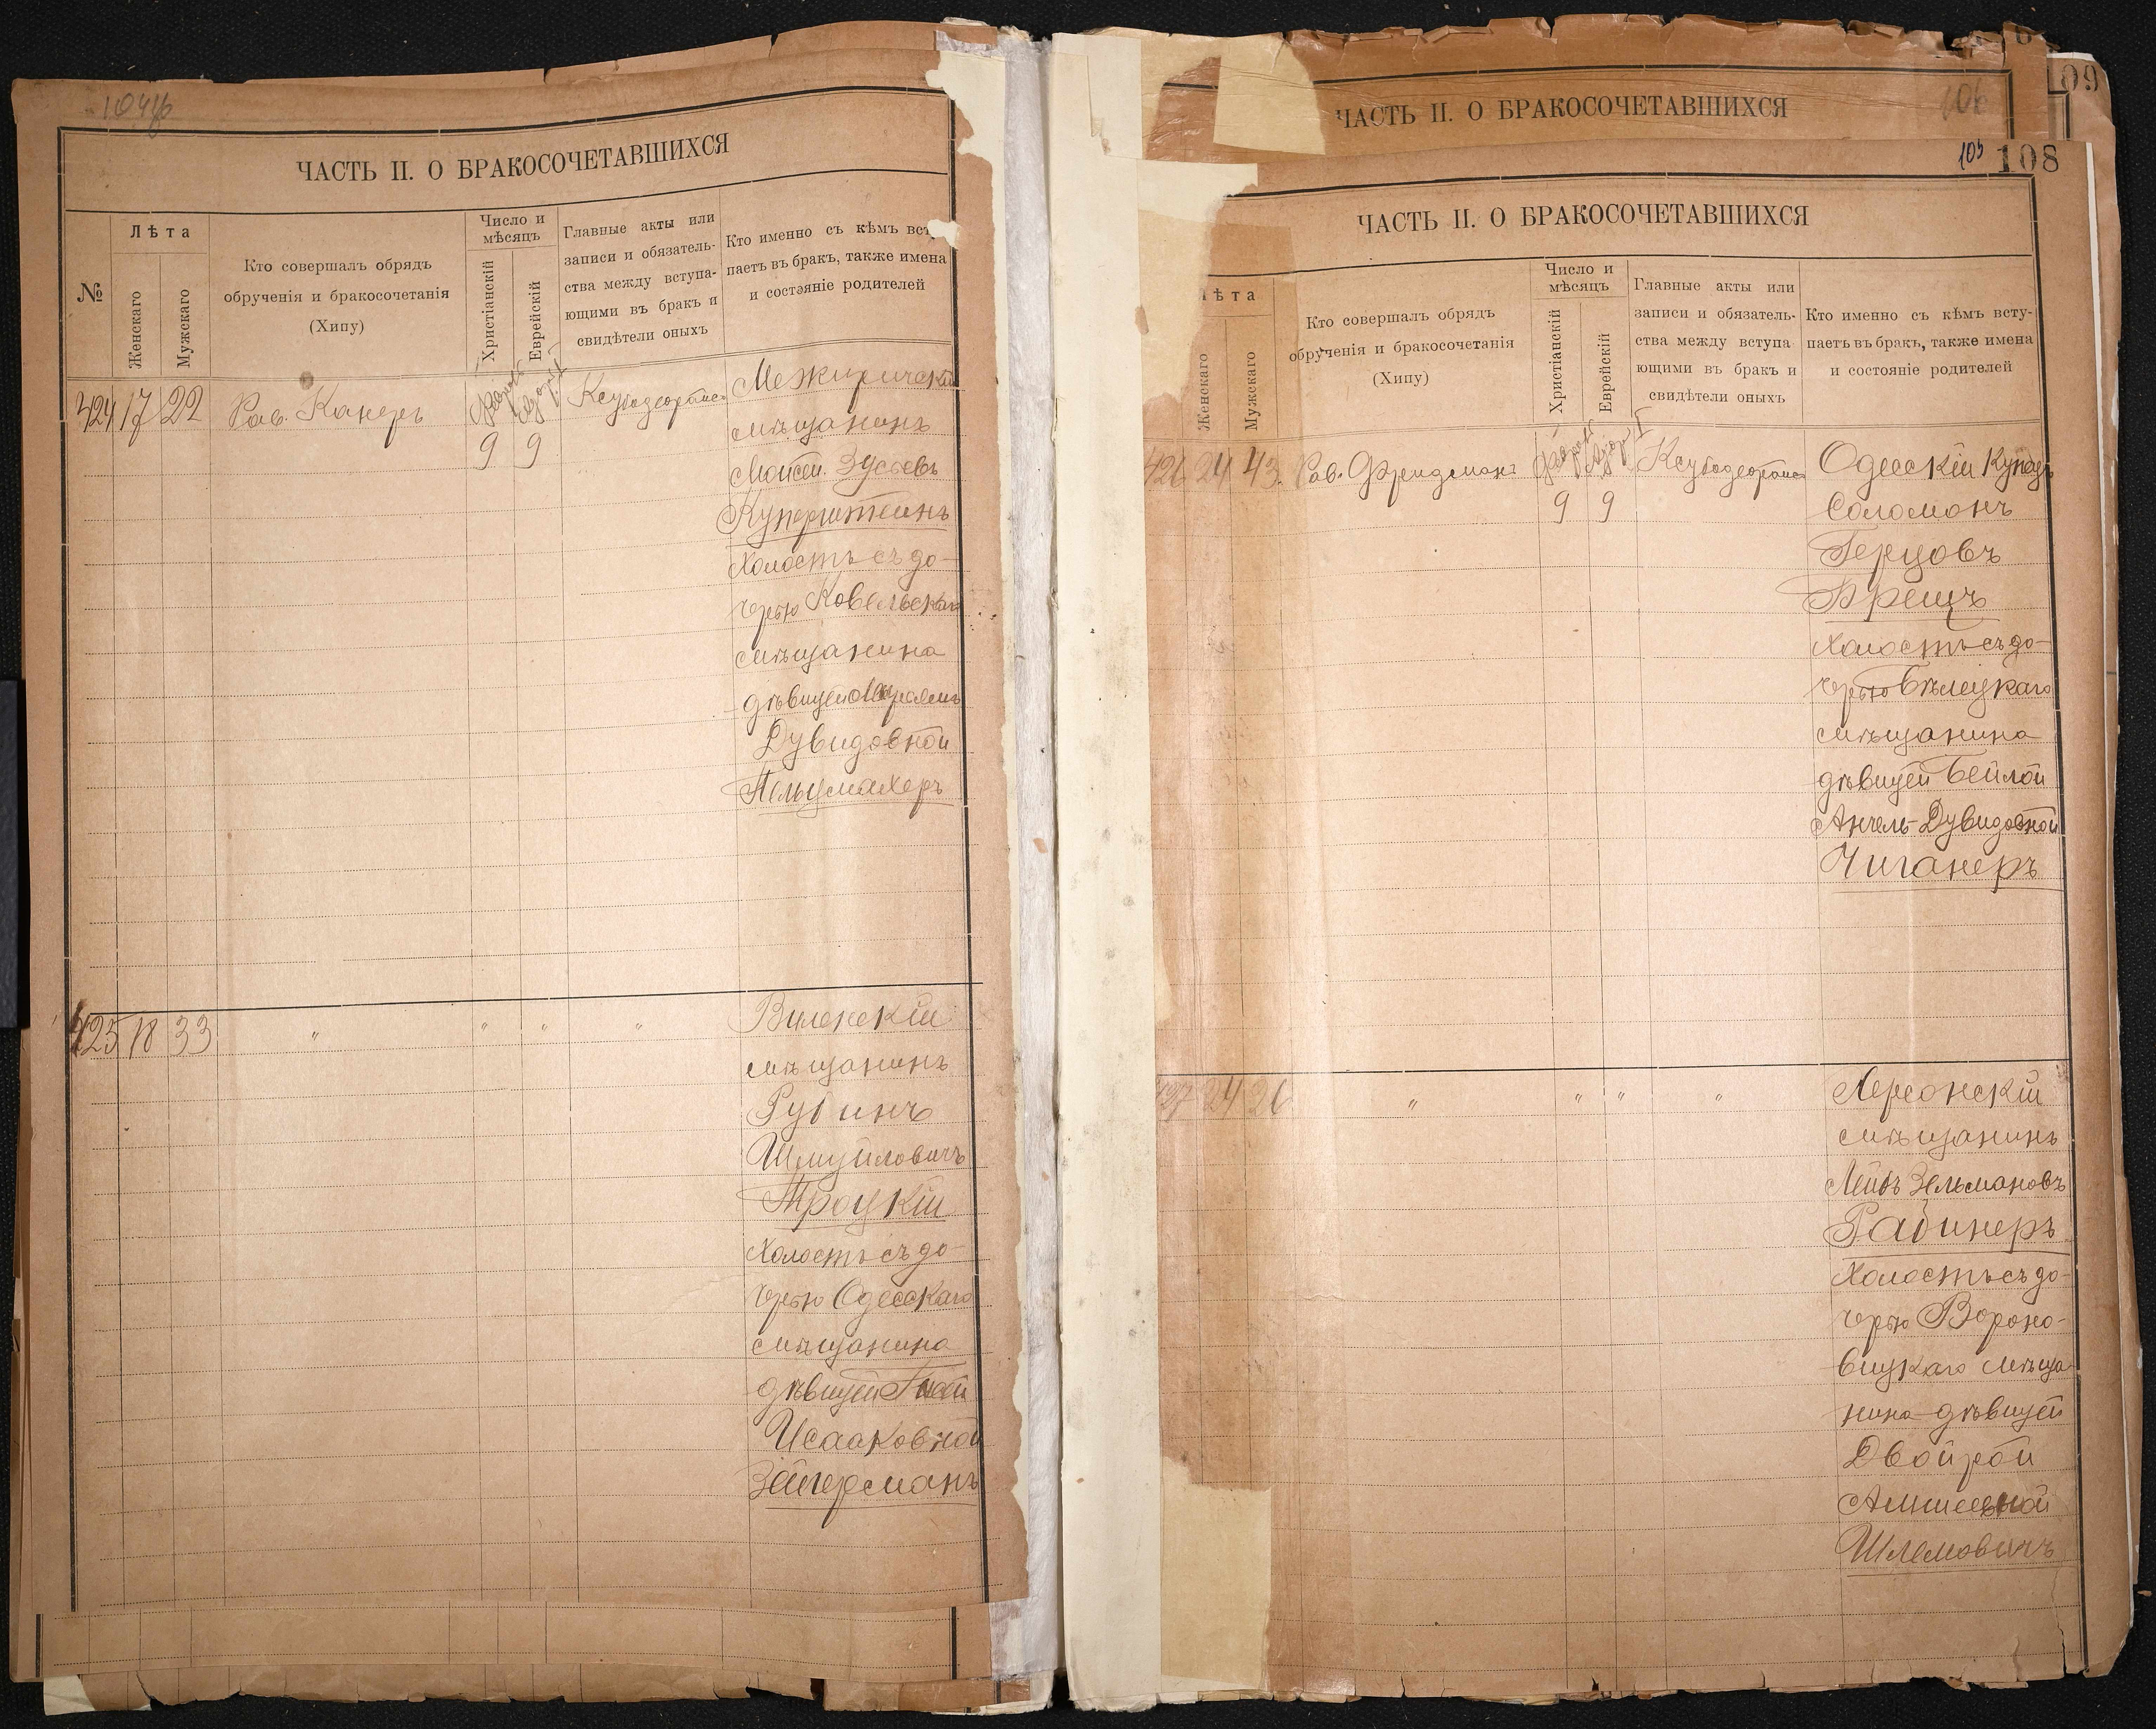 ЧАСТЬ II. О БРАКОСОЧЕТАВШИХСЯ
№
Лѣта
Женскаго
Мужскаго
Кто совершалъ обрядъ
обрученія и бракосочетанія
(Хипу)
Число и
мѣсяцъ
Христіанскій
Еврейскій
Главные акты или
записи и обязатель-
ства между вступа-
ющими въ бракъ и
свидѣтели оныхъ
Кто именно съ кѣмъ всту
паетъ въ бракъ, также имена
и состояніе родителей
424 17 22 Рав. Канеръ
9 9
Межиричскій
мѣщанинъ
Мойсей Зусьевъ
Куперштейнъ
Холостъ съ до-
черью Ковельскаго
мѣщанина
дѣвицей
Дувидовной
425 18 33 " " " "
Виленскій
мѣщанинъ
Рубинъ
Шмуйловичъ
Троцкій
Холостъ съ до-
черью Одесскаго
мѣщанина
дѣвицей
Исааковной
Зейгерманъ
ЧАСТЬ II. О БРАКОСОЧЕТАВШИХСЯ
106
109
105 108
ЧАСТЬ II. О БРАКОСОЧЕТАВШИХСЯ
ѣта
Женскаго
Мужскаго
Кто совершалъ обрядъ
обрученія и бракосочетанія
(Хипу)
Число и
мѣсяцъ
Христіанскій
Еврейскій
Главные акты или
записи и обязатель-
ства между вступа
ющими въ бракъ и
свидѣтели оныхъ
Кто именно съ кѣмъ всту-
паетъ въ бракъ, также имена
и состояніе родителей
426 24 43 Рав. Фридманъ
9 9
Одесскій Купецъ
Соломонъ
Герцовъ
Брещъ
Холостъ съ до-
черью Бѣлецкаго
мѣщанина
дѣвицей Бейлой
Анчель-Дувидовной
Чиганеръ
427 24 26 " " " "
Херсонскій
мѣщанинъ
Лейбъ Зельмановъ
Рабинеръ
Холостъ съ до-
черью Вороно-
вицкаго мѣща-
нина дѣвицей
Двойрой
Шлемовичъ